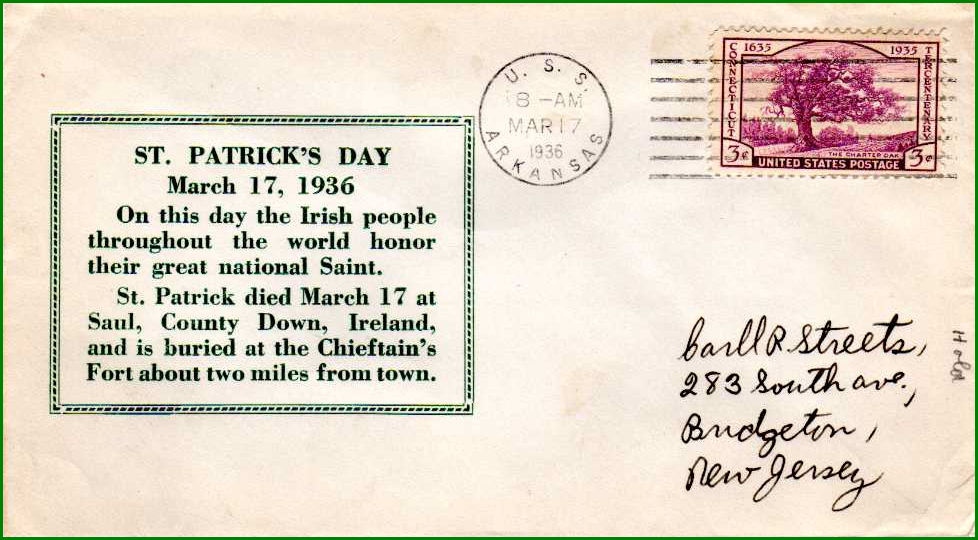 ST. PATRICK'S DAY
March 17, 1936
On this day the Irish people
throughout the world honor
their great national Saint.
St. Patrick died March 17 at
Saul, County Down, Ireland,
and is buried at the Chieftain's
Fort about two miles from town.
U. S. S.
8 - AM
MAR 17
1936
ARKANSAS
1635 1935
CONNECTICUT
TERCENTENARY
THE CHARTER OAK
3¢ UNITED STATES POSTAGE 3¢
Carll R. Streets,
283 South ave.,
Bridgeton,
New Jersey